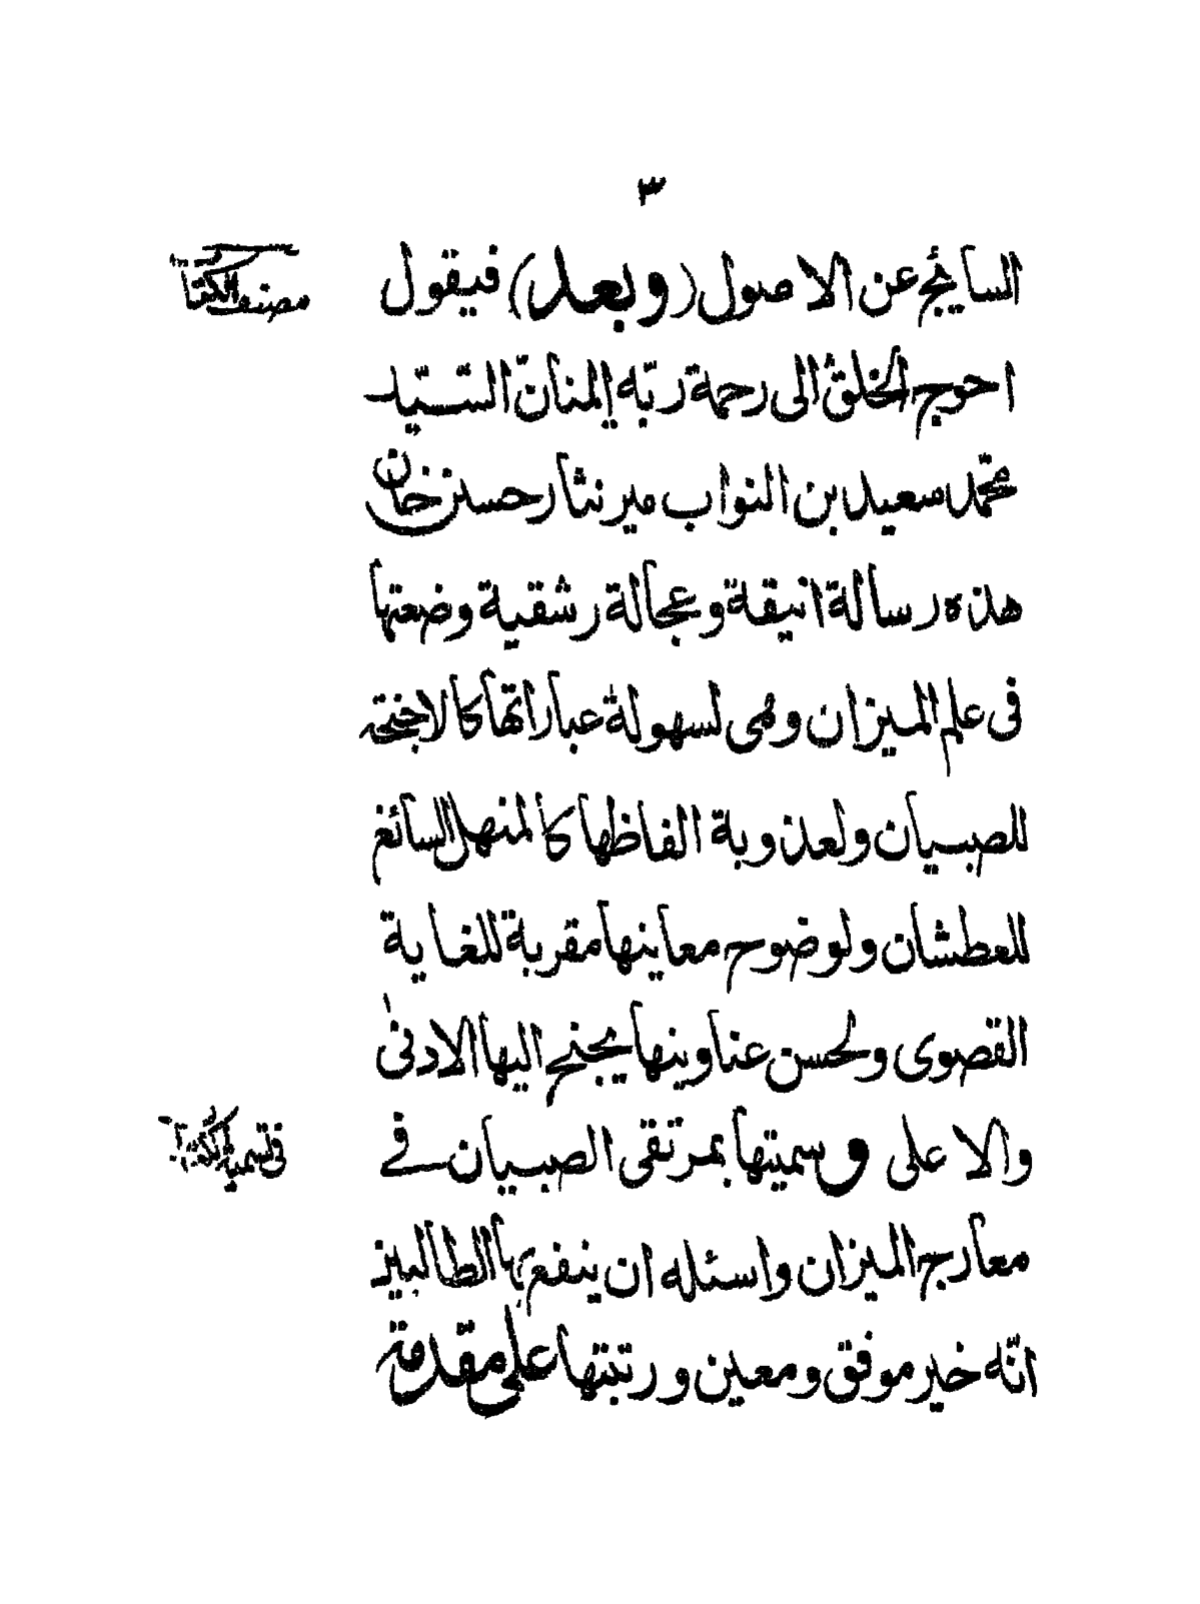 ٣
السايئج عن الاصول (وبعد) فيقول
مصنف الكتاب
احوج الخلق الى رحمة ربّه المنانّ السّيّد
محمّد سعيد بن النواب مير نثار حسين خان
هذه رسالة انيقة وعجالة رشقية وضعتها
فى علم الميزان وهى لسهولة عباراتها كالاجنحة
للصبيان ولعذوبة الفاظها كالمنهل السائغ
للعطشان ولوضوح معاينها مقربة للغاية
القصوى ولحسن عناوينها يجنح اليها الادنىٰ
والاعلى وسميتها بمرتقى الصبيان فى
فى تسمية الكتاب
معارج الميزان واسئله ان ينفع بها الطالبين
انّه خير موفق ومعين ورتبتها على مقدمة